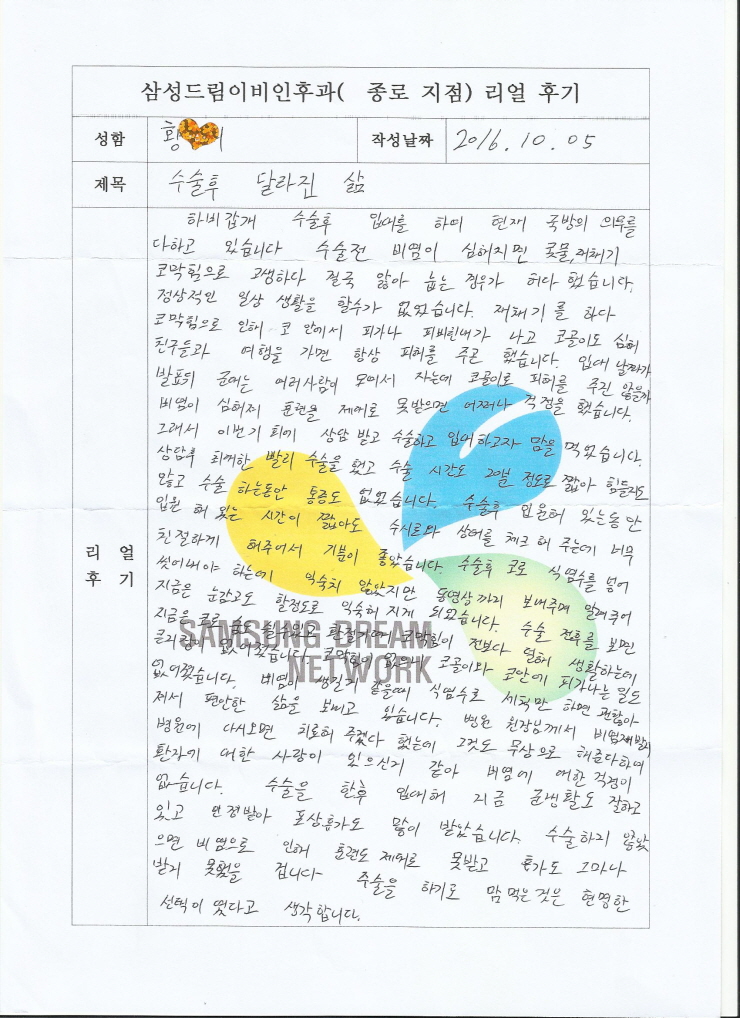 삼성드림이비인후과( 종로 지점) 리얼 후기
성함 황 이 작성날짜 2016.10.05
제목 수술후 달라진 삶
하비갑개 수술후 입대를 하여 현재 국방의 의무를
다하고 있습니다 수술전 비염이 심해지면 콧물,재채기
코막힘으로 고생하다 결국 앓아 눕는 경우가 허다 했습니다.
정상적인 일상 생활을 할수가 없었습니다. 재채기를 하다
코막힘으로 인해 코 안에서 피가나 피비린내가 나고 코골이도 심해
친구들과 여행을 가면 항상 피해를 주곤 했습니다. 입대 날짜가
발표되 군에는 여러사람이 모여서 자는데 코골이로 피해를 주진 않을까
비염이 심해져 훈련을 제대로 못받으면 어쩌나 걱정을 했습니다.
그래서 이번기회에 상담 받고 수술하고 입대하고자 맘을 먹었습니다.
상담후 최대한 빨리 수술을 했고 수술 시간도 20분 정도로 짧아 힘들지도
않고 수술 하는동안 통증도 없었습니다. 수술후 입원해 있는동안
입원 해 있는 시간이 짧아도 수시로와 상태를 체크 해 주는데 너무
친절하게 해주어서 기분이 좋았습니다. 수술후 코로 식염수를 넣어
씻어내야 하는데 익숙치 않았지만 동영상까지 보내주며 알려주어
지금은 눈감고도 할정도로 익숙해 지게 되었습니다. 수술 전후를 보면
지금은 코로 숨도 쉴수있고 환절기에 코막힘이 전보다 덜해 생활하는데
없어졌습니다 코막힘이 없으니 코골이와 코안에 피가나는 일도
없어졌습니다. 비염이 생길거 같을때 식염수로 세척만 하면 괜찮아
져서 편안한 삶을 보내고 있습니다. 병원 원장님께서 비염재발시
병원에 다시오면 치료해 주겠다 했는데 그것도 무상으로 해준다하여
환자에 대한 사랑이 있으신거 같아 비염에 대한 걱정이
없습니다. 수술을 한후 입대해 지금 군생활도 잘하고
있고 인정받아 포상휴가도 많이 받았습니다. 수술하지 않았
으면 비염으로 인해 훈련도 제대로 못받고 휴가도 그마나
받지 못했을 겁니다 수술을 하기로 맘먹는것은 현명한
선택이 였다고 생각합니다.
리 얼
후 기
SAMSUNG DREAM
NETWORK